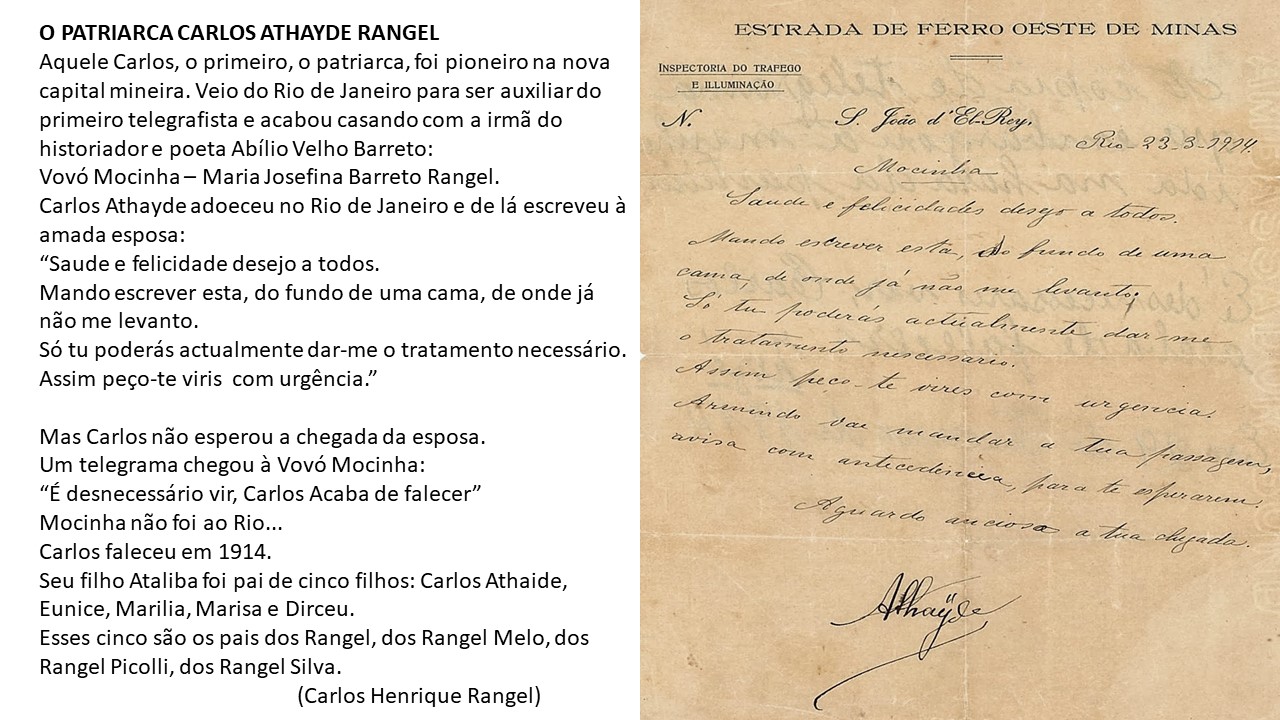 O PATRIARCA CARLOS ATHAYDE RANGEL
Aquele Carlos, o primeiro, o patriarca, foi pioneiro na nova
capital mineira. Veio do Rio de Janeiro para ser auxiliar do
primeiro telegrafista e acabou casando com a irmã do
historiador e poeta Abílio Velho Barreto:
Vovó Mocinha – Maria Josefina Barreto Rangel.
Carlos Athayde adoeceu no Rio de Janeiro e de lá escreveu à
amada esposa:
“Saude e felicidade desejo a todos.
Mando escrever esta, do fundo de uma cama, de onde já
não me levanto.
Só tu poderás actualmente dar-me o tratamento necessário.
Assim peço-te viris com urgência.”
Mas Carlos não esperou a chegada da esposa.
Um telegrama chegou à Vovó Mocinha:
“É desnecessário vir, Carlos Acaba de falecer”
Mocinha não foi ao Rio...
Carlos faleceu em 1914.
Seu filho Ataliba foi pai de cinco filhos: Carlos Athaide,
Eunice, Marilia, Marisa e Dirceu.
Esses cinco são os pais dos Rangel, dos Rangel Melo, dos
Rangel Picolli, dos Rangel Silva.
(Carlos Henrique Rangel)
ESTRADA DE FERRO OESTE DE MINAS
INSPECTORIA DO TRAFEGO
E ILLUMINAÇÃO
N.
S. João d'El-Rey,
Rio 23-3-1914.
Mocinha
Saude e felicidades desejo a todos.
Mando escrever esta, do fundo de uma
cama, de onde já não me levanto;
Só tu poderás actualmente dar-me
o tratamento necessario.
Assim peço-te vires com urgencia.
Armindo vae mandar a tua passagem,
avisa com antecedencia, para te esperarem.
Aguardo ancioso a tua chegada.
Athaÿde